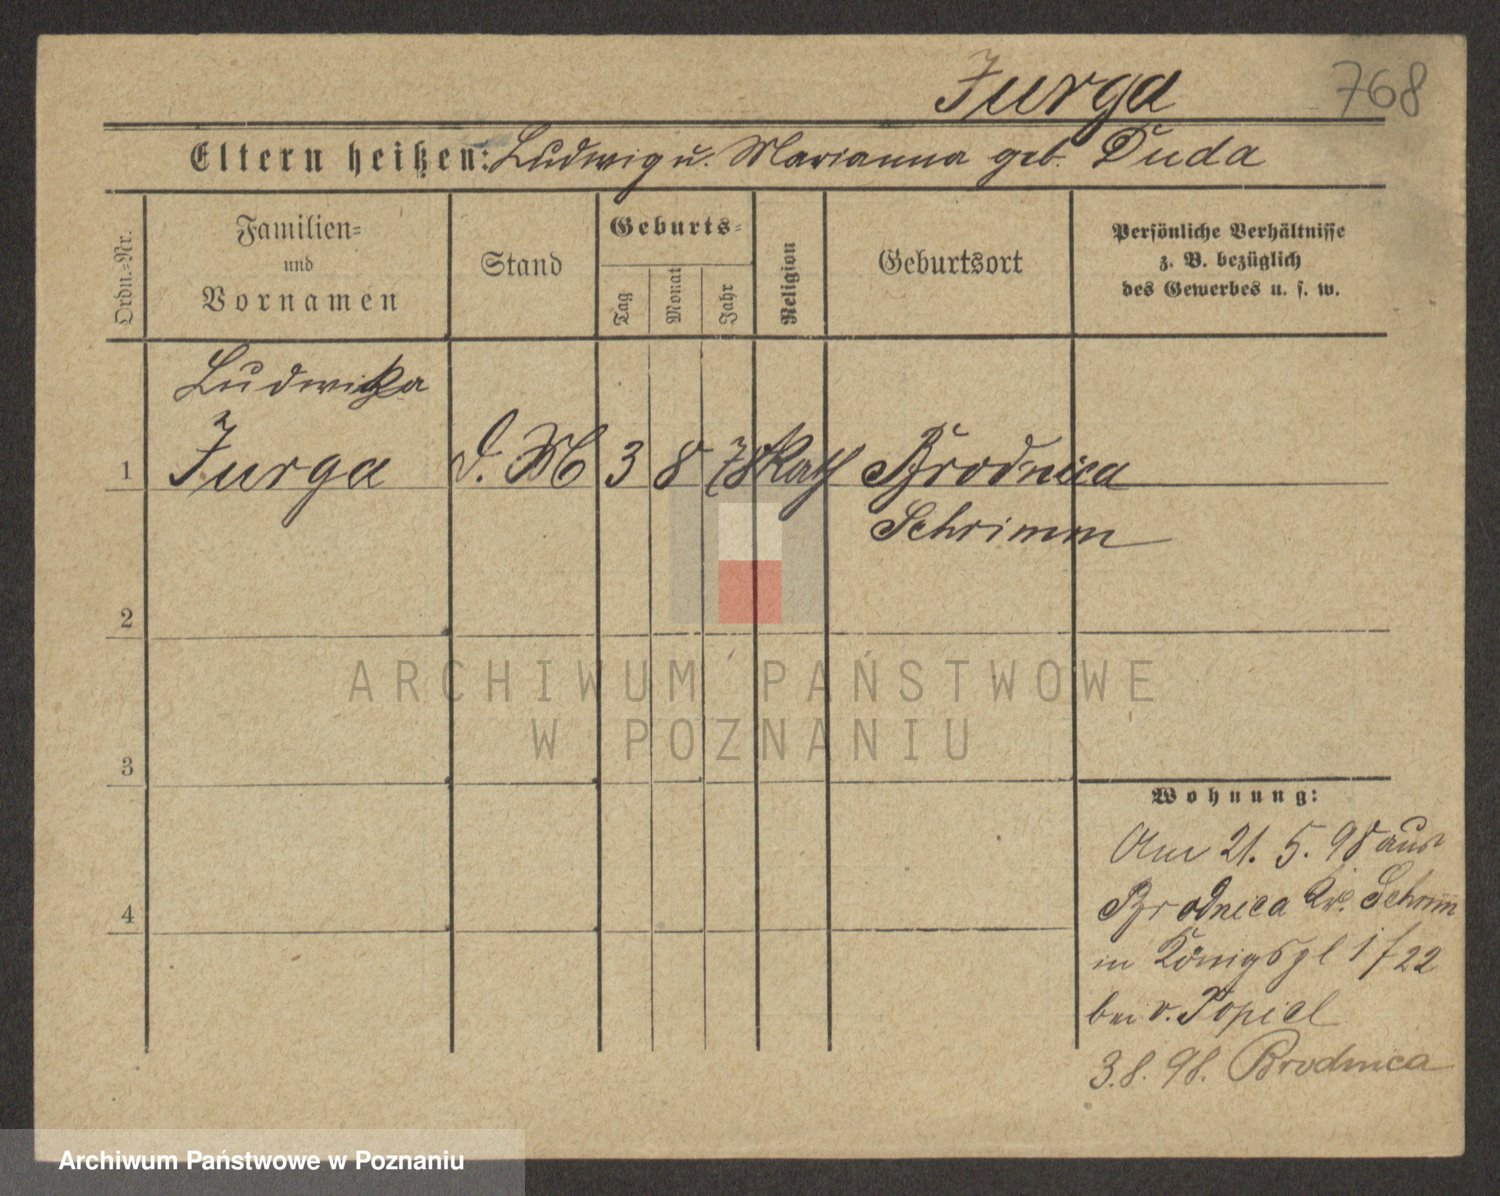 Jurga 768
Eltern heißen: Ludwig u. Marianna geb. Duda
Ordn.-Nr.
Familien-
und
Vornamen
Stand
Geburts-
Tag
Monat
Jahr
Religion
Geburtsort
Persönliche Verhältnisse
z. B. bezüglich
des Gewerbes u. s. w.
Ludwika
1 Jurga d. M 3 8 78 Kath Brodnica
Schrimm
2
ARCHIWUM PAŃSTWOWE
W POZNANIU
3
Wohnung:
Am 21. 5. 98 aus
Brodnica Kr. Schrimm
4
in Königspl 1 / 22
bei v.
3. 8. 98. Brodnica
Archiwum Państwowe w Poznaniu